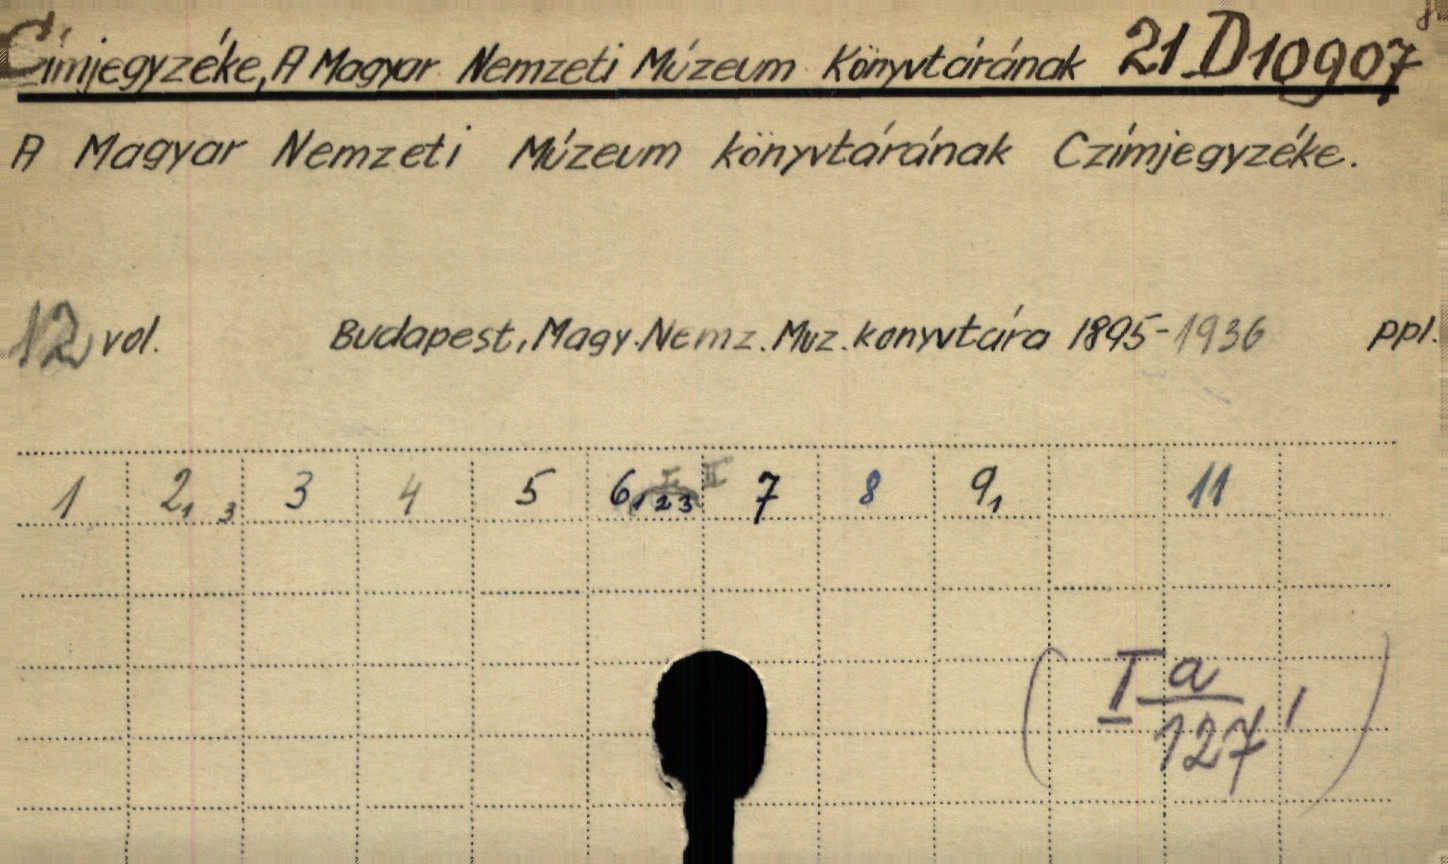 Címjegyzéke, A Magyar Nemzeti Múzeum Könyvtárának 21 D10907
A Magyar Nemzeti Múzeum könyvtárának Czímjegyzéke.
12 vol. Budapest, Magy. Nemz. Muz. konyvtára 1895-1936 ppl.
1 2 1 3 3 4 5 6 1 2 3 I II 7 8 9 1 11
( I a
127 / )